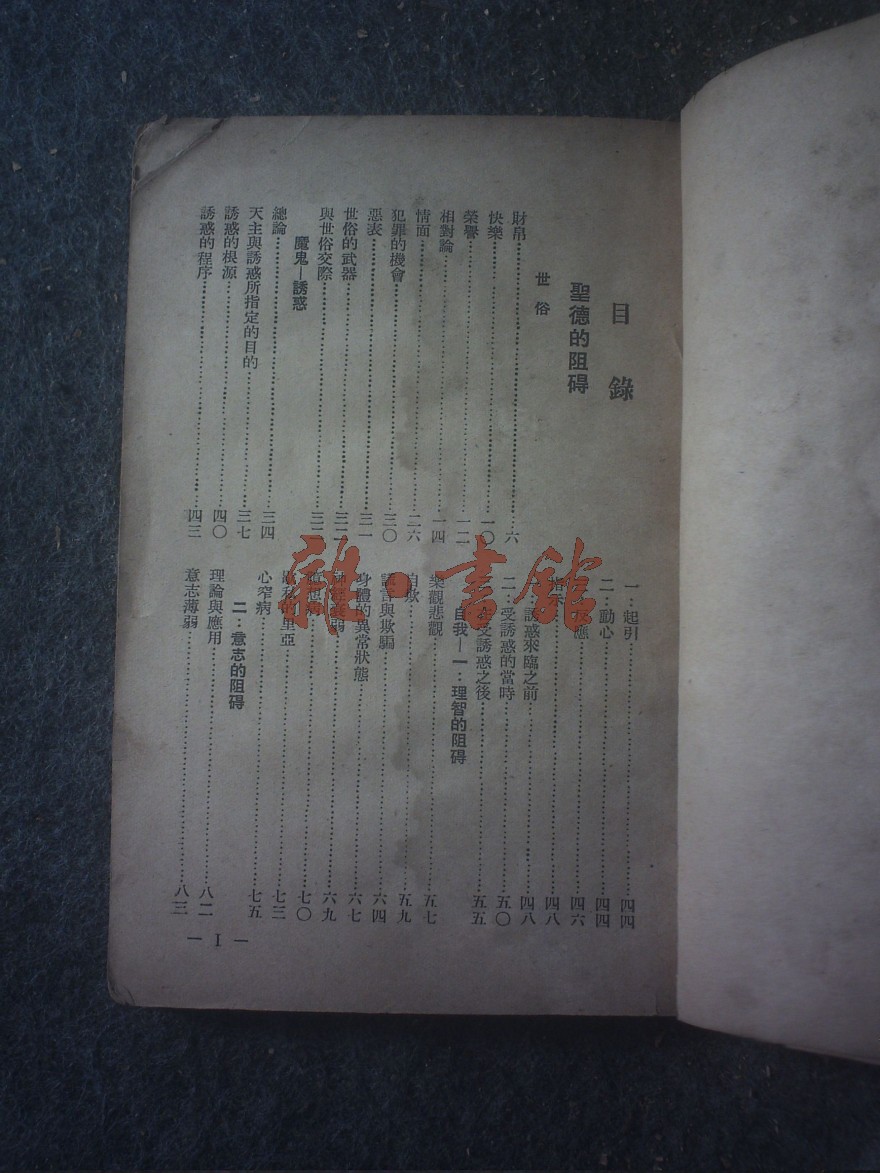 目錄
聖德的阻碍
世俗
財帛……六
快樂……一〇
榮譽……一二
相對論……一四
情面……二六
犯罪的機會……三〇
惡表……三一
世俗的武器……三二
與世俗交際……三二
魔鬼—誘惑
總論……三四
天主與誘惑所指定的目的……三七
誘惑的根源……四〇
誘惑的程序……四三
一：起引……四四
二：動心……四四
應……四六
……四八
誘惑來臨之前……四八
二：受誘惑的當時……五〇
受誘惑之後……五五
自我—一：理智的阻碍
樂觀悲觀……五七
自欺……五九
謊言與欺騙……六四
身體的異常狀態……六七
神經衰弱……六九
想病……七〇
私的里亞……七三
心窄病……七五
二：意志的阻碍
理論與應用……八二
意志薄弱……八三
— I —
雜·書館